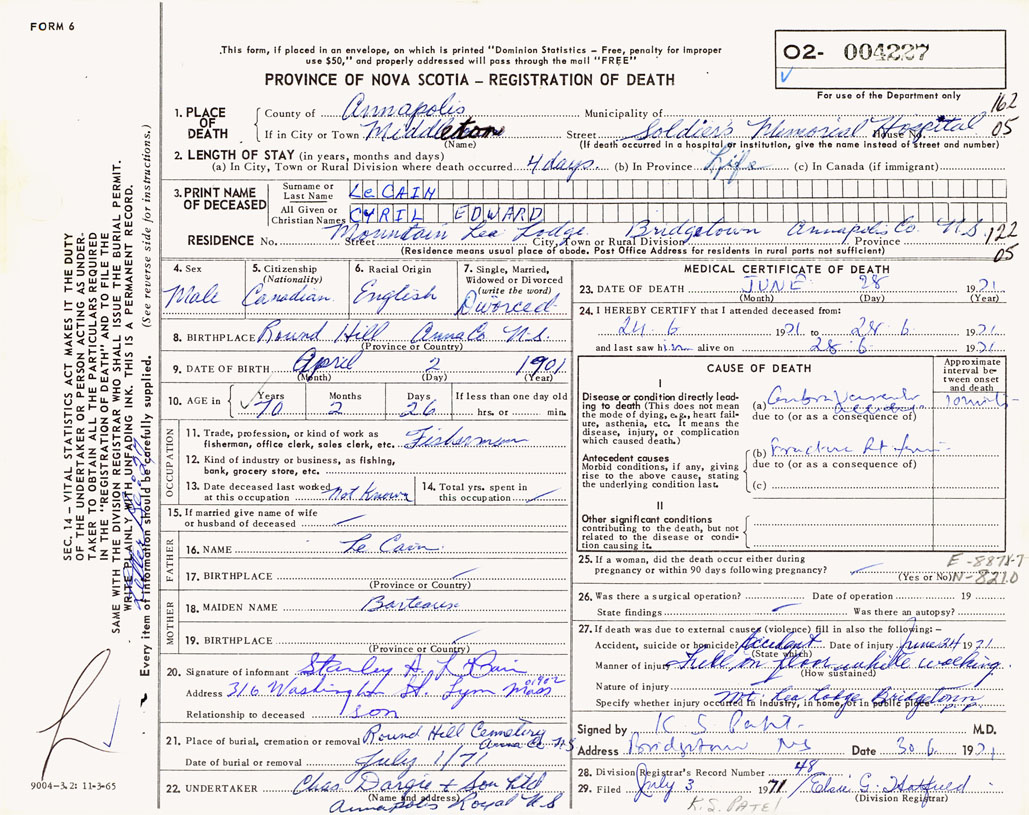 FORM 6
This form, if placed in an envelope, on which is printed "Dominion Statistics – Free, penalty for improper
use $50," and properly addressed will pass through the mail "FREE"
PROVINCE OF NOVA SCOTIA – REGISTRATION OF DEATH
02- 004227
For use of the Department only
162
05
1. PLACE OF DEATH
County of Annapolis Municipality of
If in City or Town Middleton Street Soldiers Memorial Hospital House No.
(Name) (If death occurred in a hospital or institution, give the name instead of street and number)
2. LENGTH OF STAY (in years, months and days)
(a) In City, Town or Rural Division where death occurred 4 days. (b) In Province Life (c) In Canada (if immigrant)
3. PRINT NAME OF DECEASED
Surname or Last Name LeCAIN
All Given or Christian Names CYRIL EDWARD
RESIDENCE No. Mountain Lea Lodge Street Bridgetown City, Town or Rural Division Annapolis Co. N.S. Province
122
05
(Residence means usual place of abode. Post Office Address for residents in rural parts not sufficient)
4. Sex
Male
5. Citizenship
(Nationality)
Canadian
6. Racial Origin
English
7. Single, Married,
Widowed or Divorced
(write the word)
Divorced
8. BIRTHPLACE Round Hill Anna Co. N.S.
(Province or Country)
9. DATE OF BIRTH April 2 1901
(Month) (Day) (Year)
10. AGE in
Years 70
Months 2
Days 26
If less than one day old
hrs. or min.
OCCUPATION
11. Trade, profession, or kind of work as
fisherman, office clerk, sales clerk, etc. Fisherman
12. Kind of industry or business, as fishing,
bank, grocery store, etc.
13. Date deceased last worked
at this occupation Not Known
14. Total yrs. spent in
this occupation
15. If married give name of wife
or husband of deceased
FATHER
16. NAME Le Cain
17. BIRTHPLACE
(Province or Country)
MOTHER
18. MAIDEN NAME Barteaux
19. BIRTHPLACE
(Province or Country)
20. Signature of informant Stanley A. LeCain
Address 316 Washington St. Lynn Mass 01902
Relationship to deceased son
21. Place of burial, cremation or removal Round Hill Cemetery
Anna Co. N.S
Date of burial or removal July 1/71
22. UNDERTAKER Chas Dargie & Son Ltd
(Name and address)
Annapolis Royal N.S
MEDICAL CERTIFICATE OF DEATH
23. DATE OF DEATH JUNE 28 1971
(Month) (Day) (Year)
24. I HEREBY CERTIFY that I attended deceased from:
24. 6 1971 to 28.6 1971
and last saw him alive on 28.6 1971
CAUSE OF DEATH
Approximate
interval be-
tween onset
and death
I
Disease or condition directly lead-
ing to death (This does not mean
the mode of dying, e.g., heart fail-
ure, asthenia, etc. It means the
disease, injury, or complication
which caused death.)
(a)
due to (or as a consequence of)
Antecedent causes
Morbid conditions, if any, giving
rise to the above cause, stating
the underlying condition last.
(b) Fracture Rt
due to (or as a consequence of)
(c)
II
Other significant conditions
contributing to the death, but not
related to the disease or condi-
tion causing it.
25. If a woman, did the death occur either during
pregnancy or within 90 days following pregnancy?
(Yes or No)
E-887X-7
N-821.0
26. Was there a surgical operation? Date of operation 19
State findings Was there an autopsy?
27. If death was due to external causes (violence) fill in also the following: –
Accident, suicide or homicide? Accident Date of injury June 24 1971
(State which)
Manner of injury Fell on floor while walking.
(How sustained)
Nature of injury
Specify whether injury occurred in industry, in home, or in public place Mt. Lea Lodge Bridgetown
Signed by K S Patel M.D.
Address Bridgetown NS Date 30 6 1971
28. Division Registrar's Record Number 48
29. Filed July 3 1971 Elsie G. Hatfield
(Division Registrar)
K.S. PATEL
SEC. 14 – VITAL STATISTICS ACT MAKES IT THE DUTY
OF THE UNDERTAKER OR PERSON ACTING AS UNDER-
TAKER TO OBTAIN ALL THE PARTICULARS REQUIRED
IN THE "REGISTRATION OF DEATH" AND TO FILE THE
SAME WITH THE DIVISION REGISTRAR WHO SHALL ISSUE THE BURIAL PERMIT.
WRITE PLAINLY WITH UNFADING INK. THIS IS A PERMANENT RECORD.
Every item of information should be carefully supplied. (See reverse side for instructions.)
9004-3.2: 11-3-65